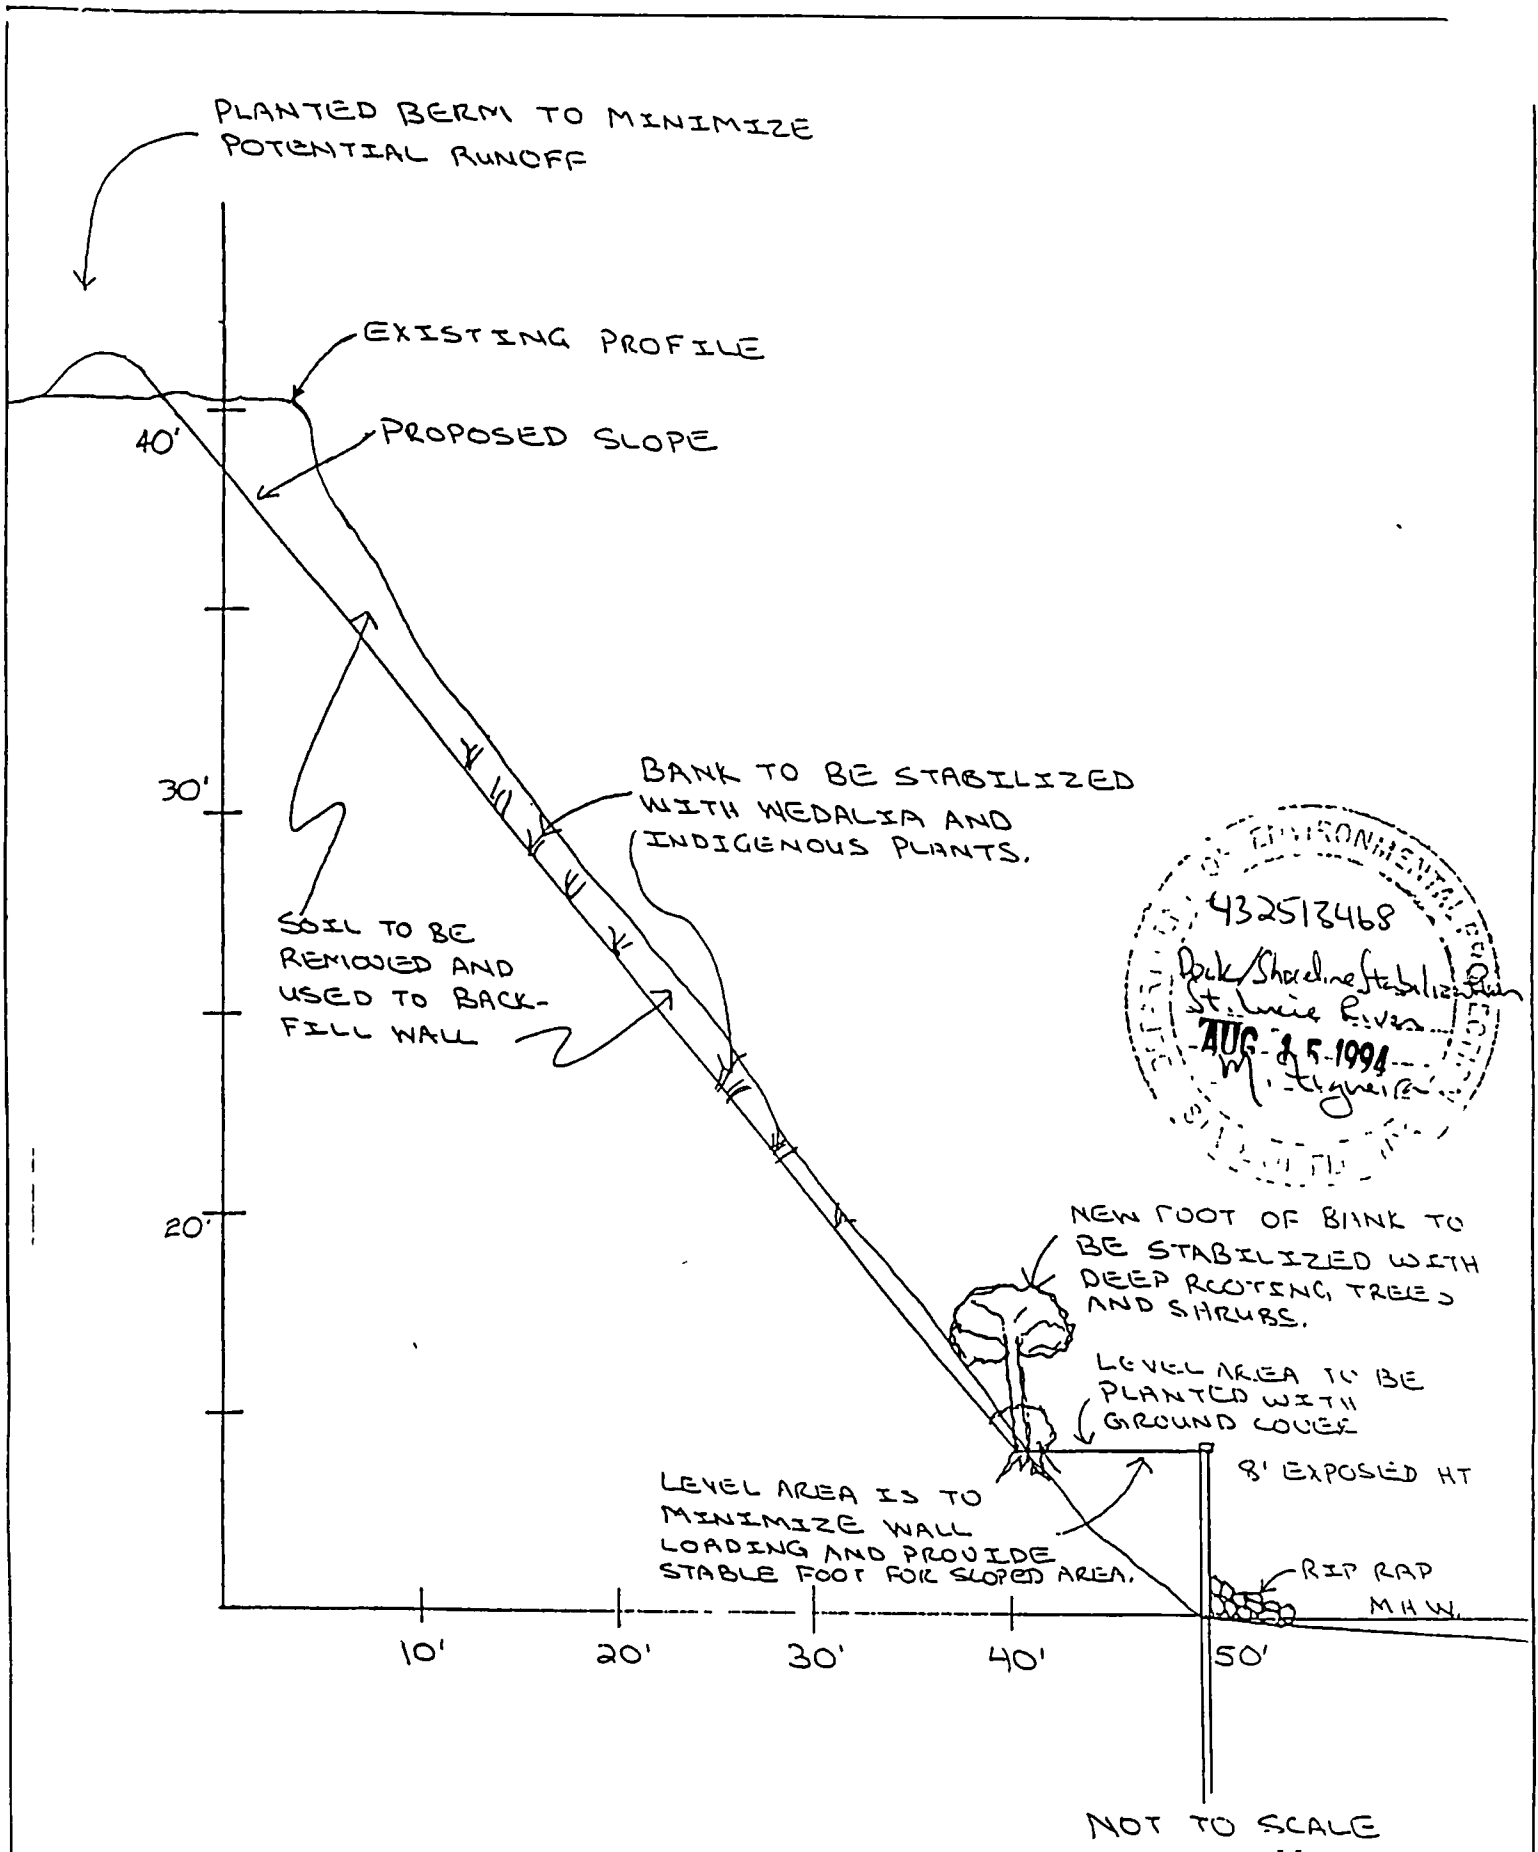 PLANTED BERM TO MINIMIZE
POTENTIAL RUNOFF
EXISTING PROFILE
PROPOSED SLOPE
40'
30'
BANK TO BE STABILIZED
WITH WEDALIA AND
INDIGENOUS PLANTS.
SOIL TO BE
REMOVED AND
USED TO BACK-
FILL WALL
OF ENVIRONMENTAL
432513468
Dock/Shoreline Stabilization
St. Lucie River
AUG 15 1994
M.
20'
NEW FOOT OF BANK TO
BE STABILIZED WITH
DEEP ROOTING TREES
AND SHRUBS.
LEVEL AREA TO BE
PLANTED WITH
GROUND COVER
8' EXPOSED HT
LEVEL AREA IS TO
MINIMIZE WALL
LOADING AND PROVIDE
STABLE FOOT FOR SLOPED AREA.
RIP RAP
MHW.
10'
20'
30'
40'
50'
NOT TO SCALE